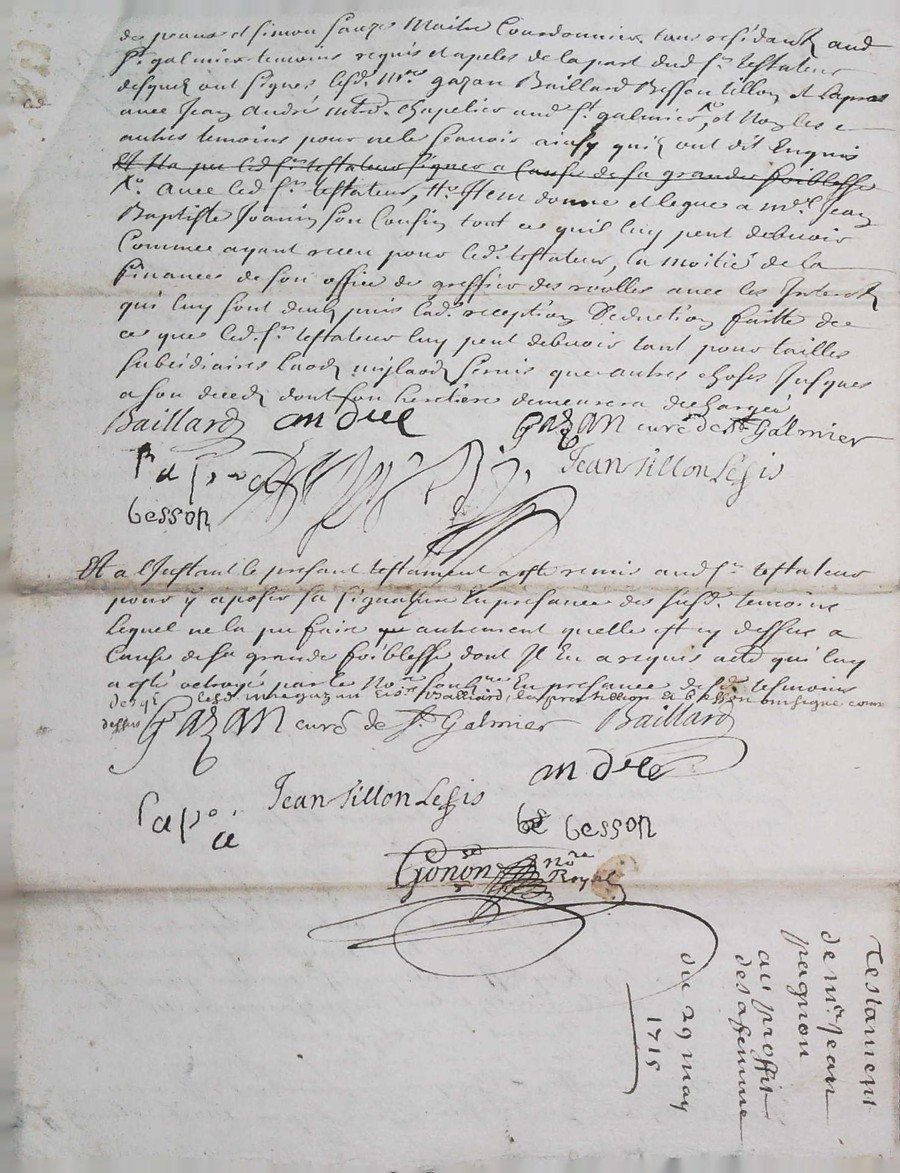 de peaux et simon sauze Maitre Courdonnier tous residants aud
St. galmier temoins requis et apeles de la part dud sr. testateur
desquels ont signes lesd. Mres gazan Baillard Besson tillon et Lapras
avec Jean André mtre. chapelier aud St. galmier, et non les
autres temoins pour ne le scavoir ainsy quils ont dit Enquis
Et n'a pu led sr. testateur signer a Cause de sa grande foiblesse
avec led sr. testateur, Item donne et legue a mr. Jean
Baptiste Joanin son Cousin tout ce quil luy peut debvoir
Comme ayant receu pour led. testateur, la moitié de la
finance de son office de greffier des rolles avec les Interets
qui luy sont deub puis lad. reception Deduction faitte de
ce que led. sr. testateur luy peut debvoir tant pour tailles
subsidiaires que autres choses Jusques
a son deceds dont son heritiere demeurera dechargée
Baillard andre Gazan curé de St Galmier
Jean Tillon Lesis
besson
Et a l'Instant le presant testament a esté remis aud sr. testateur
pour y aposer sa signature En presance des susd. temoins
Lequel ne la pu faire autrement quelle est cy dessus a
Cause de sa grande foiblesse dont Il En a requis acte qui luy
a esté octroyé par le Nore. soubsigne En presance desd. tesmoins
lesd Baillard, tillon et besson ont signe comme
dessus Gazan curé de St Galmier Baillard
andre
Jean Tillon Lesis
be besson
Gonon nore Royal
Testament
de mr. Jean
pagnon
au proffit
de sa femme
du 29 may
1715